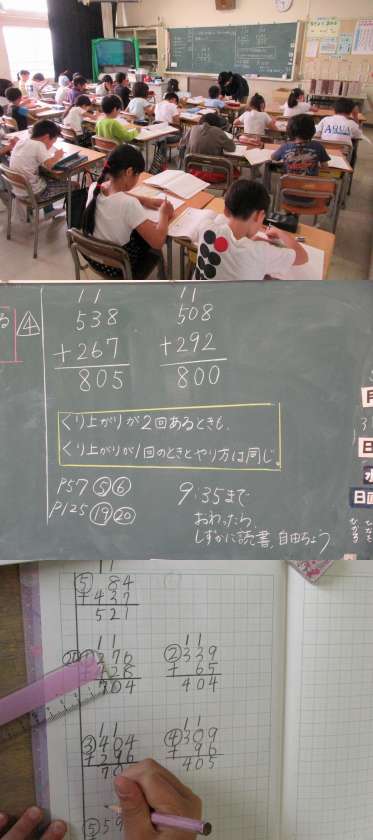 AQUA
る
4
1 1
538
+267
805
1 1
508
+292
800
くり上がりが2回あるときも、
くり上がりが1回のときとやり方は同じ。
P57 ⑤⑥
P125 ⑲⑳
9:35まで
おわったら、
しずかに読書、自由ちょう
月
日
日直
⑤ 84
+437
521
1 1
276
+428
704
② 1 1
339
+ 65
404
③ 1 1
404
+296
70
④ 1 1
309
+ 96
405
⑤ 59